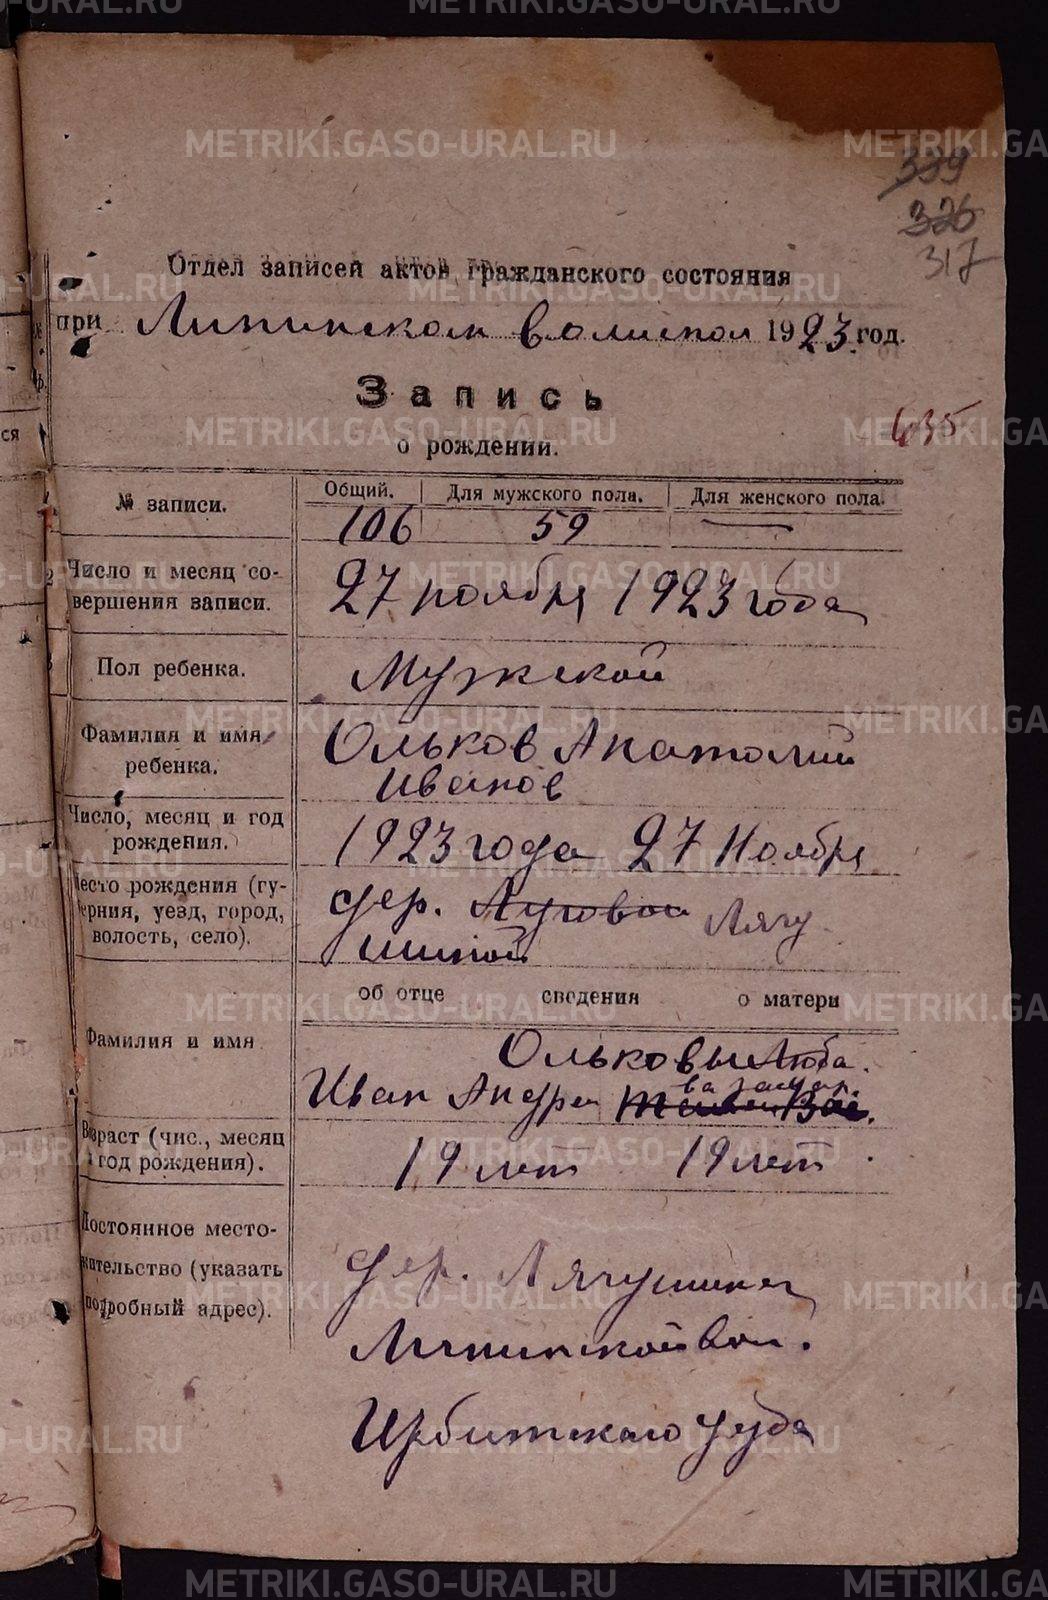 METRIKI.GASO-URAL.RU
339
326
317
Отдел записей актов гражданского состояния
при Липинском волиспол 1923 год.
Запись
635
о рождении.
№ записи. Общий. Для мужского пола. Для женского пола.
106 59 —
Число и месяц со-
вершения записи.
27 ноября 1923 года
Пол ребенка. Мужской
Фамилия и имя
ребенка.
Ольков Анатолий
Иванов
Число, месяц и год
рождения.
1923 года 27 Ноября
Место рождения (гу-
берния, уезд, город,
волость, село).
дер. Луговой Лягу
шиной
об отце сведения о матери
Фамилия и имя
Ольковы Люба.
Иван Андре
Возраст (чис., месяц
и год рождения).
19 лет 19 лет
Постоянное место-
жительство (указать
подробный адрес).
дер. Лягушина
Липинской вол.
Ирбитскаго уезда